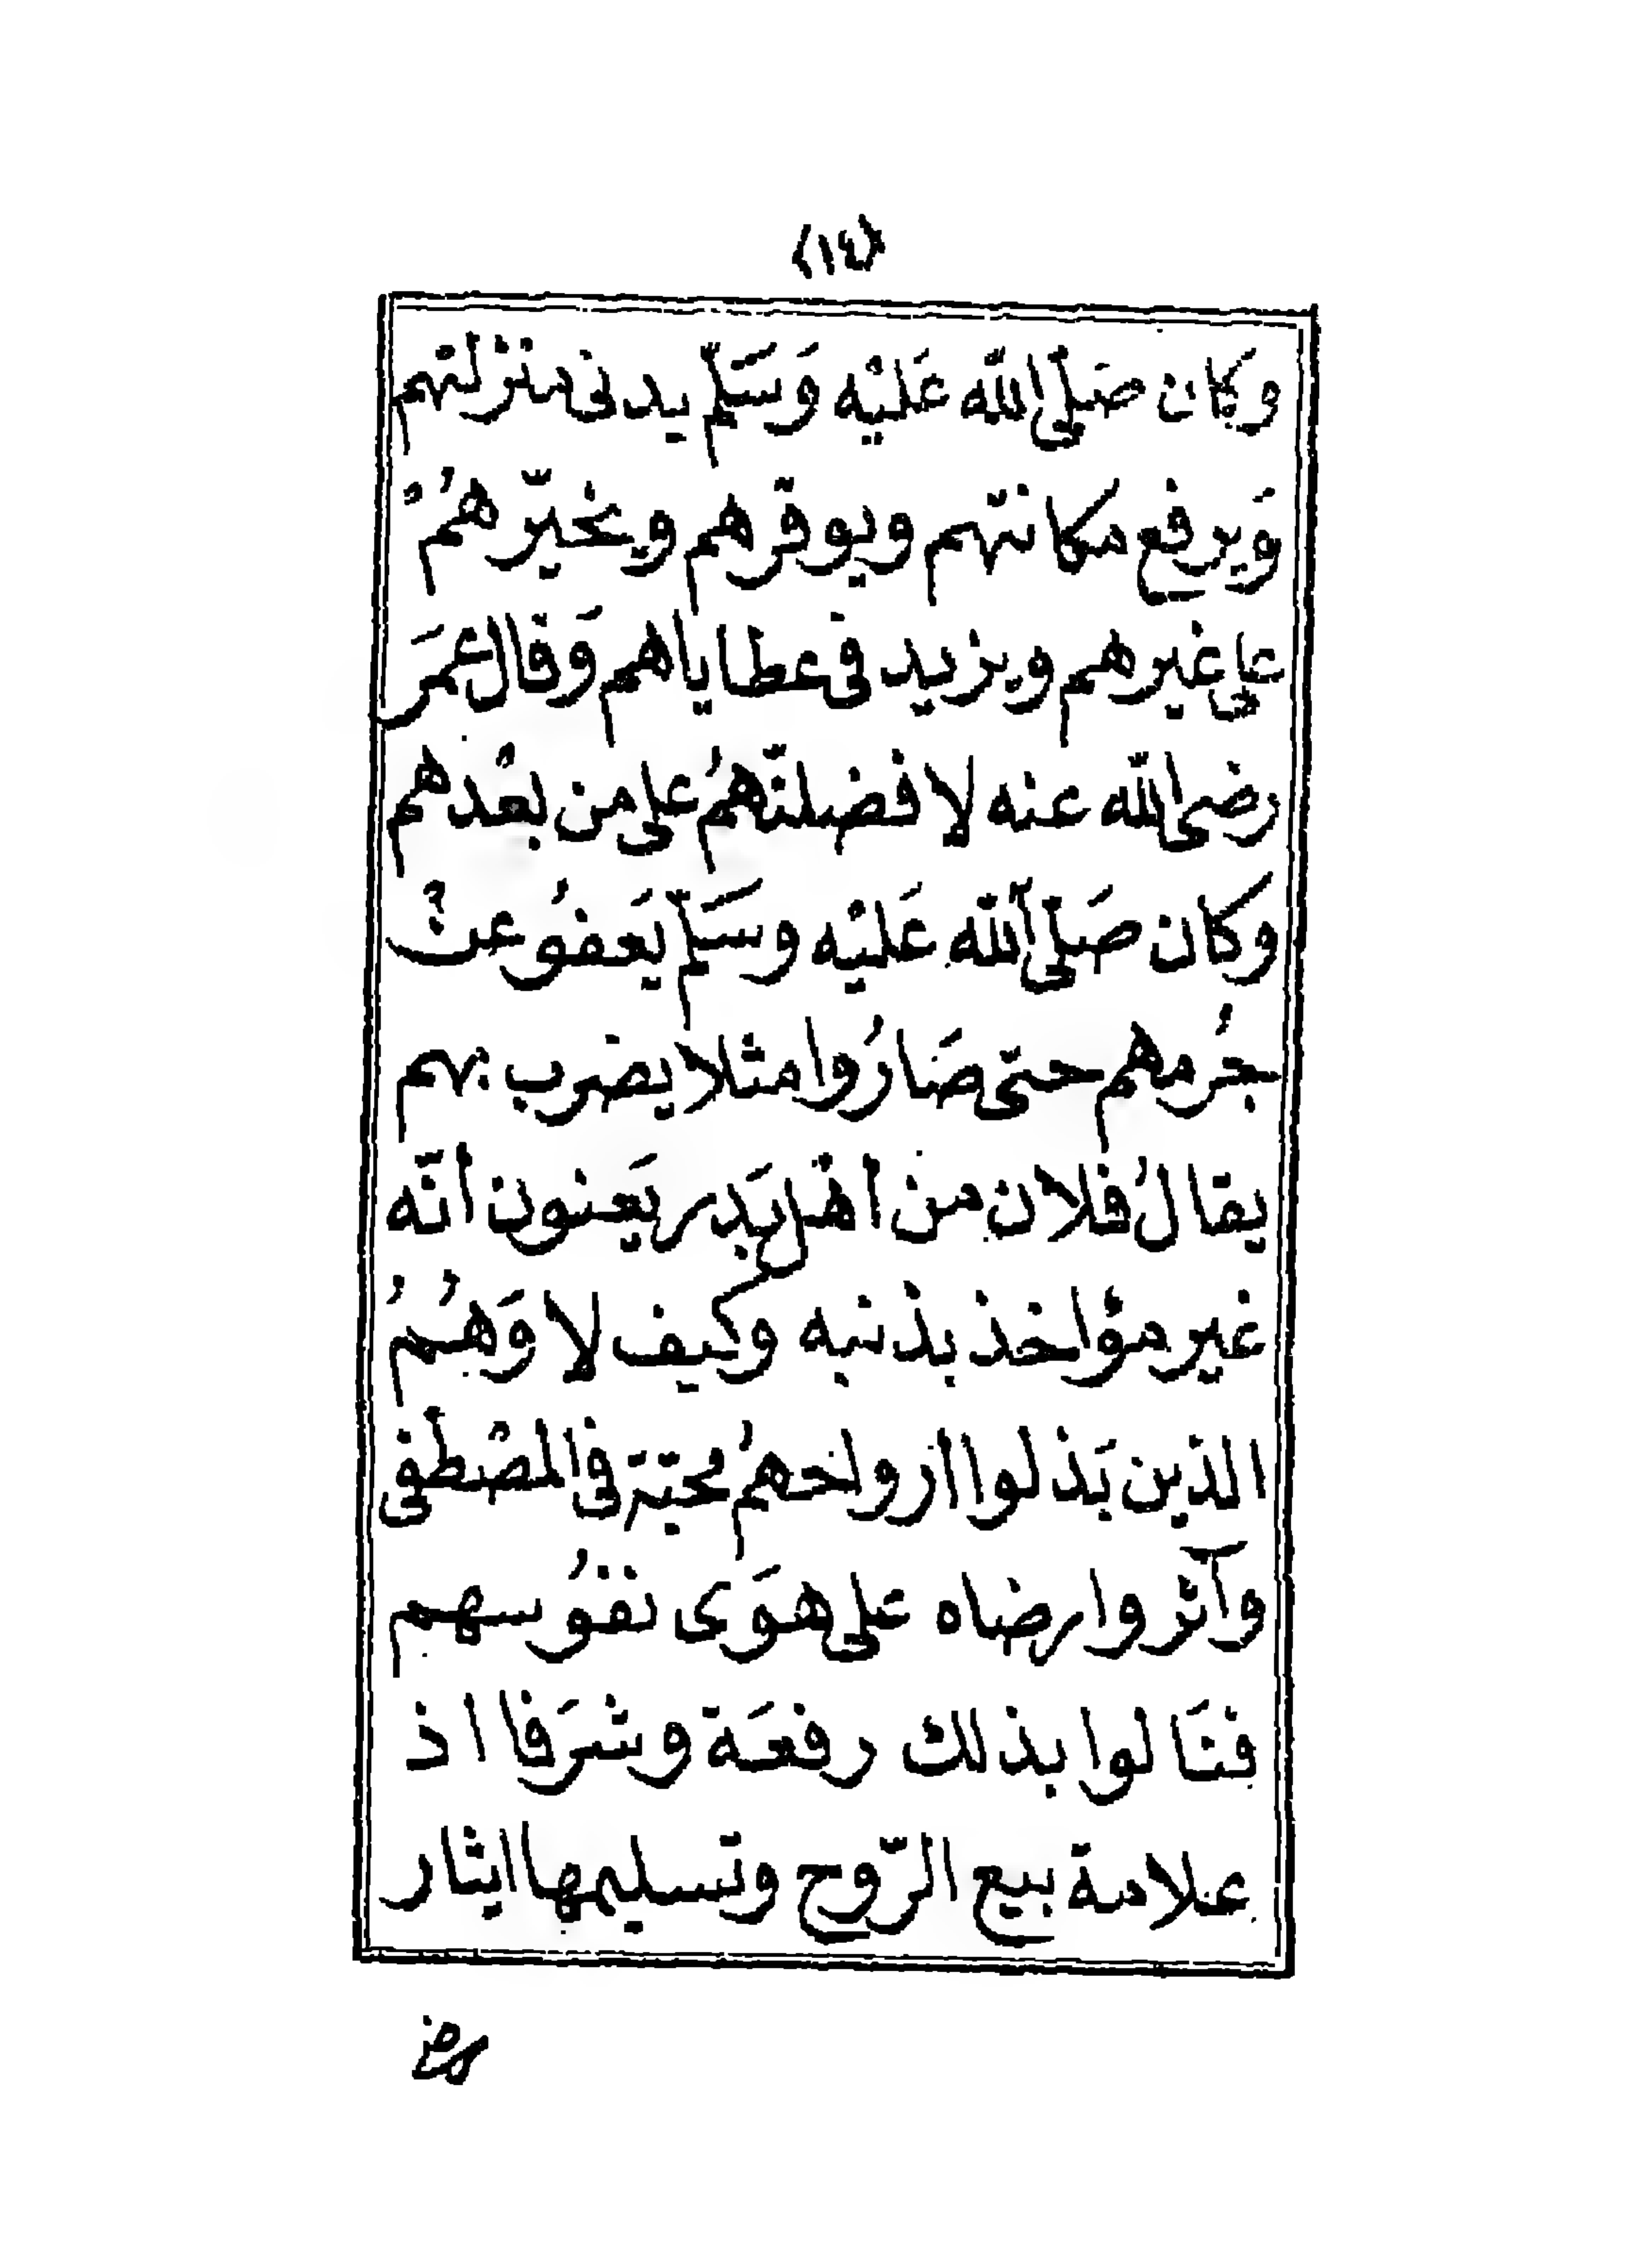 ﴿١٤﴾
وكان صَلّى الله عَليْه وَسَلّم يدنى منزلتهم
وَيرفع مكانتهم ويوقرهم ويخيّرهُمْ
على غيرهم ويزيد فى عطاياهم وَقال عُمَر
رضى الله عنه لا فضلنّهمُ على من بعْدهم
وكان صَلّى الله عَليْه وسَلّم يَعفوُ عنْ
جُرمهم حتّى صَارُوا مثلا يضرب بهم
يقالُ فلان من اهْل بَدر يَعنون انّه
غير مؤاخذ بذنبه وكيف لا وَهُمُ
الذين بَذلوا ارواحهمُ محبّة فى المصْطفى
وآثروا رضاه على هوَى نفوُسهم
فنَالوا بذلك رفعَة وشرَفا اذ
علامة بيع الرّوح وتسليمها ايثار
رضى